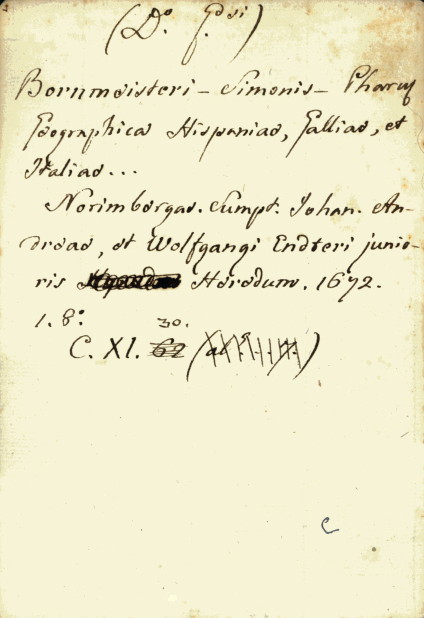 (Do. f. dsi)
Bornmeisteri - Simonis - Pharus
Geographica Hispaniae, Galliae, et
Italiae...
Norimbergae. Sumpt. Johan. An-
dreae, et Wolfgangi Endteri junio-
ris Heredum. 1672.
1. 8o.
30.
C. XI. 62
c